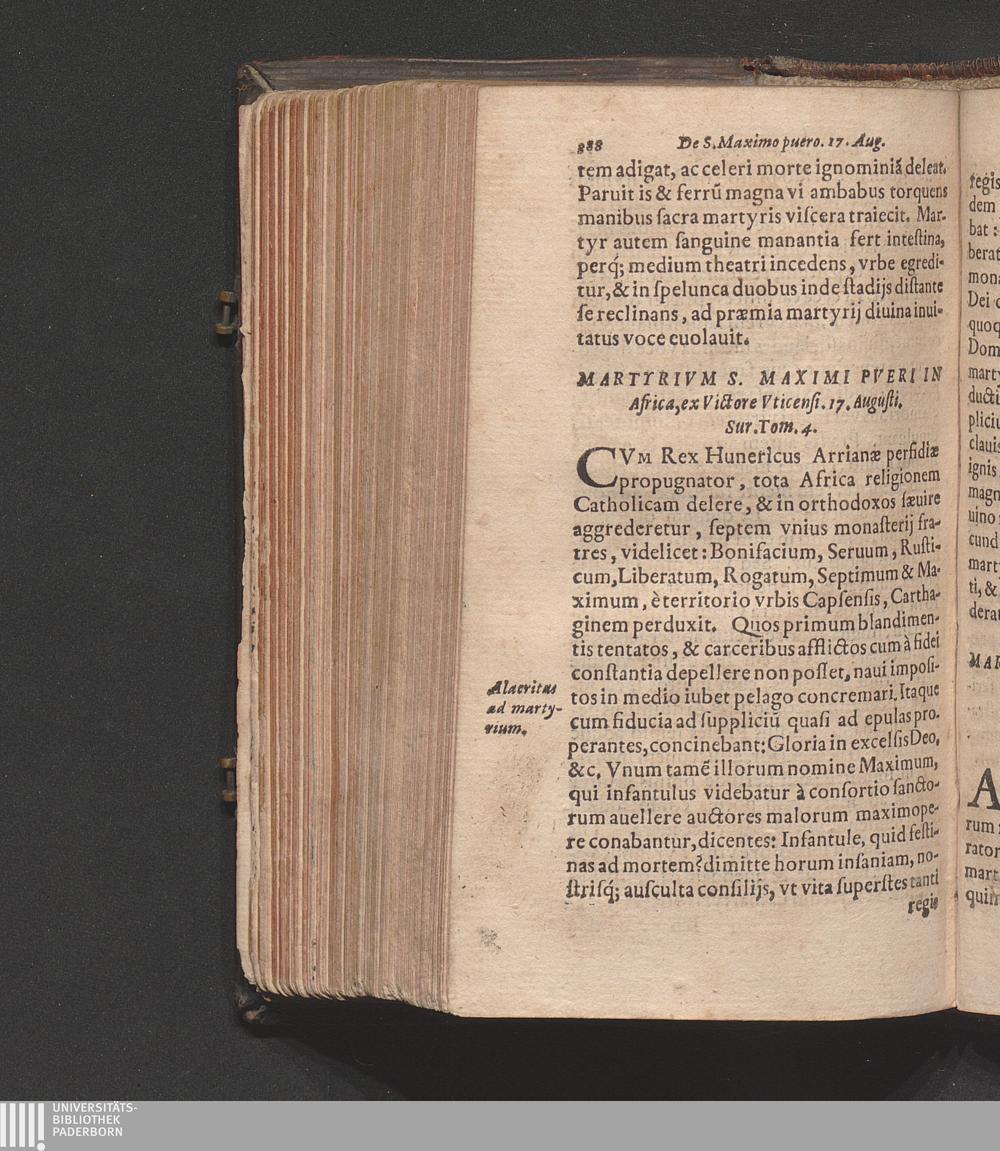 888 De S. Maximo puero. 17. Aug.
tem adigat, ac celeri morte ignominiã deleat.
Paruit is & ferrũ magna vi ambabus torquens
manibus ſacra martyris viſcera traiecit. Mar-
tyr autem ſanguine manantia fert inteſtina,
perq́; medium theatri incedens, vrbe egredi-
tur, & in ſpelunca duobus inde ſtadijs diſtante
ſe reclinans, ad præmia martyrij diuina inui-
tatus voce euolauit.
MARTYRIVM S. MAXIMI PVERI IN
Africa, ex Victore Vticenſi. 17. Auguſti.
Sur. Tom. 4.
CVM Rex Hunericus Arrianæ perfidiæ
propugnator, tota Africa religionem
Catholicam delere, & in orthodoxos ſæuire
aggrederetur, ſeptem vnius monaſterij fra-
tres, videlicet: Bonifacium, Seruum, Ruſti-
cum, Liberatum, Rogatum, Septimum & Ma-
ximum, è territorio vrbis Capſenſis, Cartha-
ginem perduxit. Quos primum blandimen-
tis tentatos, & carceribus afflictos cum à fidei
conſtantia depellere non poſſet, naui impoſi-
tos in medio iubet pelago concremari. Itaque
cum fiducia ad ſuppliciũ quaſi ad epulas pro-
perantes, concinebant: Gloria in excelſis Deo,
&c. Vnum tamẽ illorum nomine Maximum,
qui infantulus videbatur à conſortio ſancto-
rum auellere auctores malorum maximope-
re conabantur, dicentes: Infantule, quid feſti-
nas ad mortem? dimitte horum inſaniam, no-
ſtriſq́; auſculta conſilijs, vt vita ſuperſtes tanti
regis
Alacritas
ad marty-
rium.
regis
dem
bat:
berat
mona
Dei
quoq
Dom
marty
ducti
pliciu
clauis
ignis
magn
uino
cund
mart
ti, &
derat
MAR
A
rum
rator
mart
quin
UNIVERSITÄTS-
BIBLIOTHEK
PADERBORN